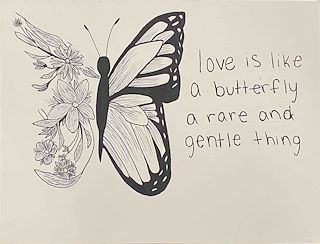 love is like
a butterfly
a rare and
gentle thing